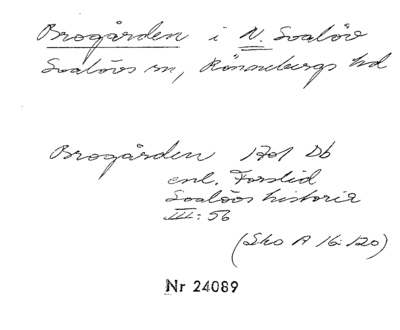 Brogården i N. Svalöv
Svalövs sn, Rönnebergs hd
Brogården 1701 Db
enl. Forslid
Svalövs historia
III: 56
(Sko A 16:120)
Nr 24089